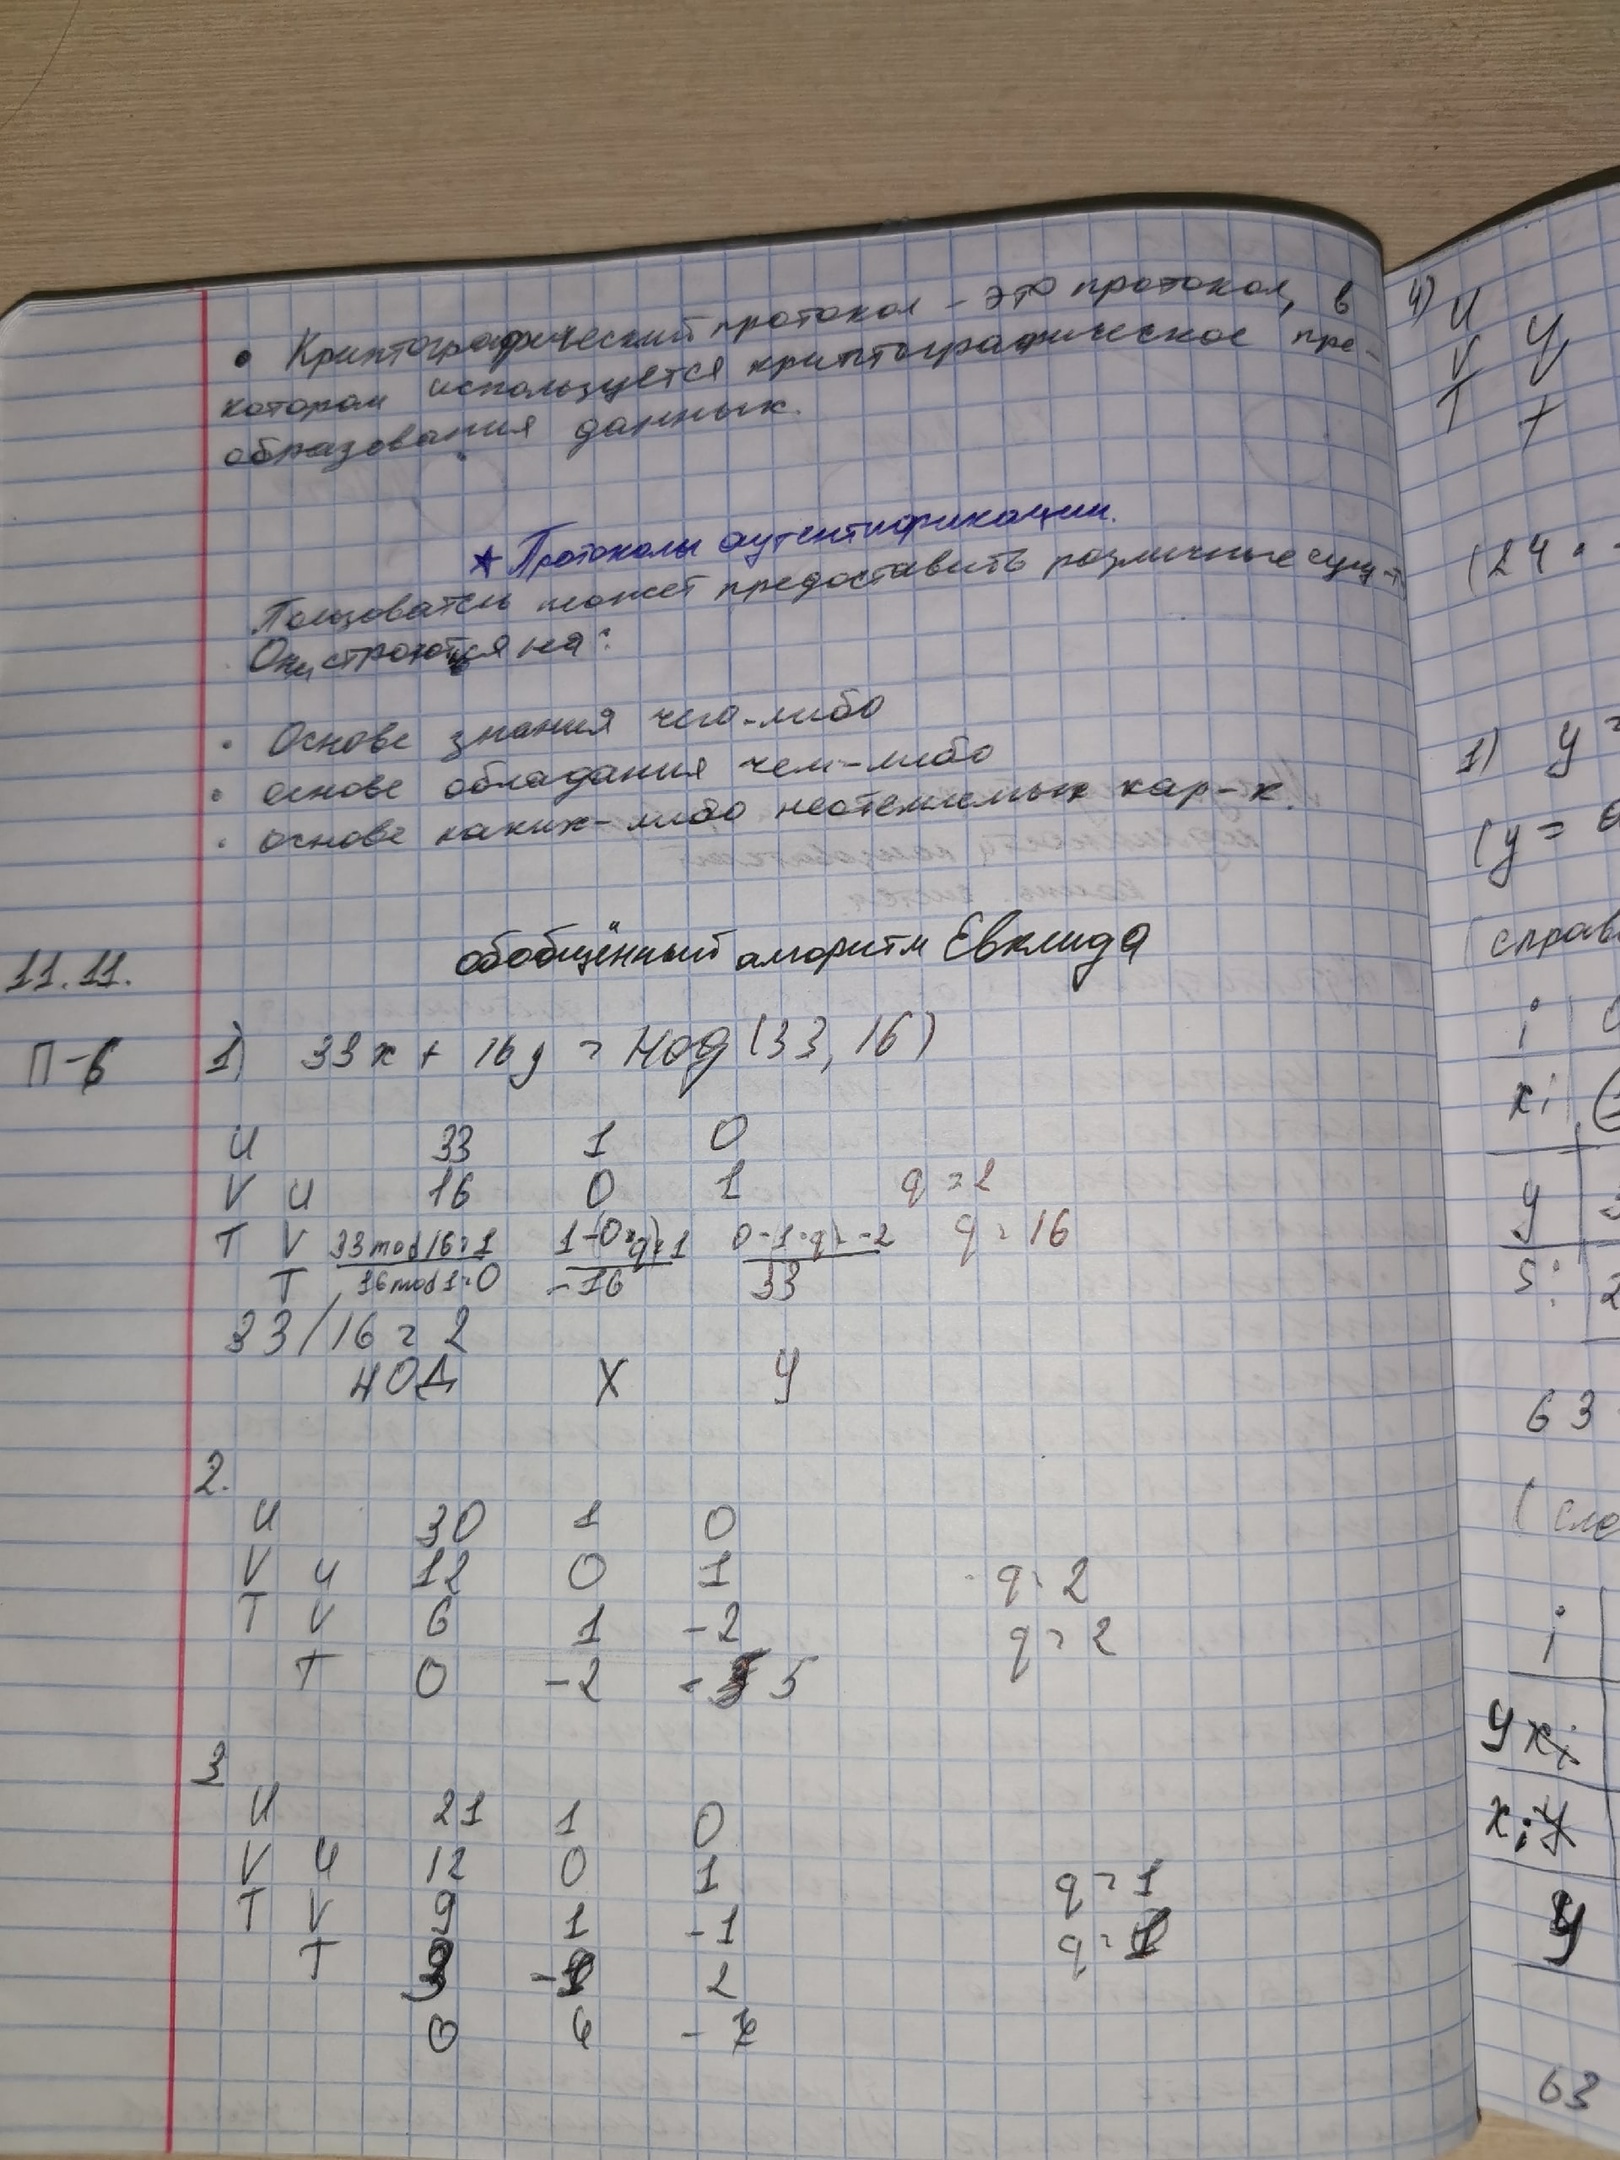 • Криптографический протокол - это протокол, в
котором используется криптографическое пре-
образования данных.
★ Протоколы аутентификации.
Ползователь может предоставить различные сущ-
Они строются на:
• Основе знания чего-либо
• основе обладания чем-либо
• основе каких-либо неотемлемых хар-к.
11.11. обобщённый алгоритм Евклида
П-6 1) 33x + 16y = НОД (33, 16)
U 33 1 0
V U 16 0 1 q = 2
T V 33 mod 16 = 1 1-0·q=1 0-1·q=-2 q = 16
T 16 mod 1 = 0 -16 33
33/16 = 2
НОД X У
2.
U 30 1 0
V U 12 0 1 q = 2
T V 6 1 -2 q = 2
T 0 -2 5
3
U 21 1 0
V U 12 0 1 q = 1
T V 9 1 -1 q = 1
T 3 -1 2
0 4 -7
4) U
V U
T V
T
(24 ·
1) y =
(y =
(справ
i 0
xi
y
si 2
63
(сло
i
y xi
xi y
y
63